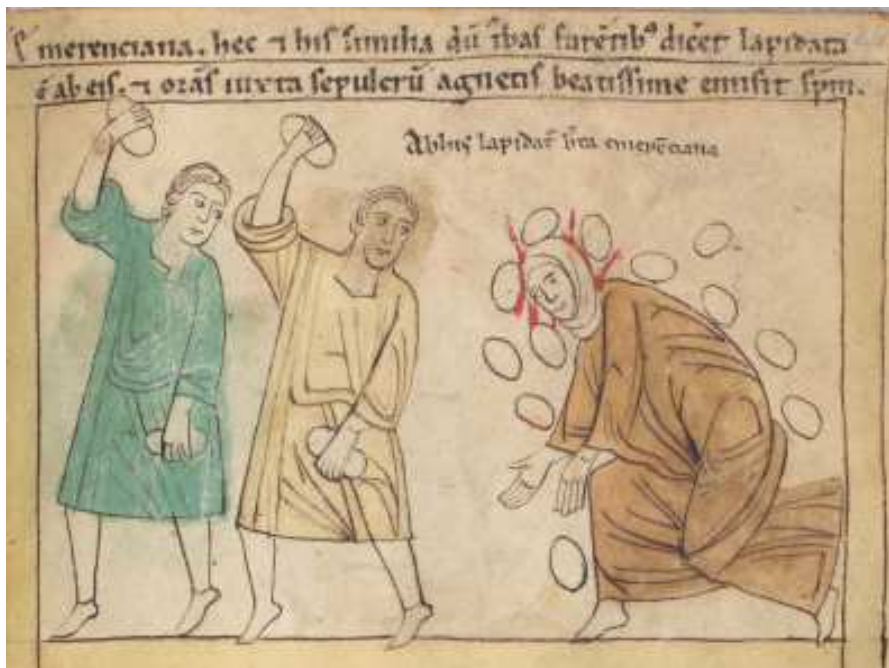 merenciana. hec ⁊ his similia dū ības furētibꝰ dic̄et lapidata
ē ab eis. ⁊ orās iuxta sepulcrū agnetis beatissime emisit sp̄m.
lapidat̄ b̄ta emerēciana